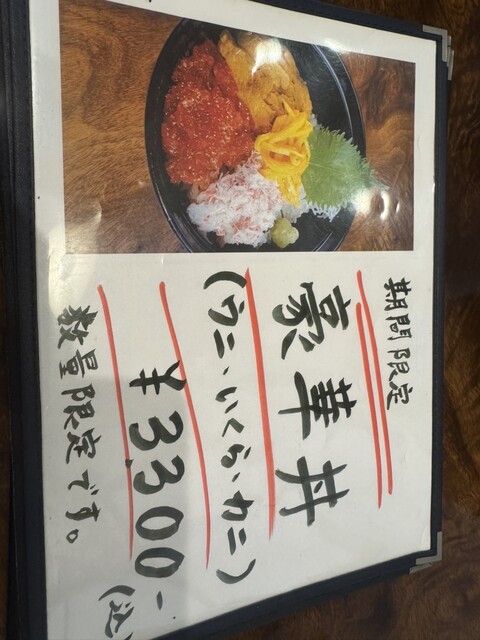 期間限定
豪華丼
(ウニ・いくら・カニ)
¥3,300-(込)
数量限定です。